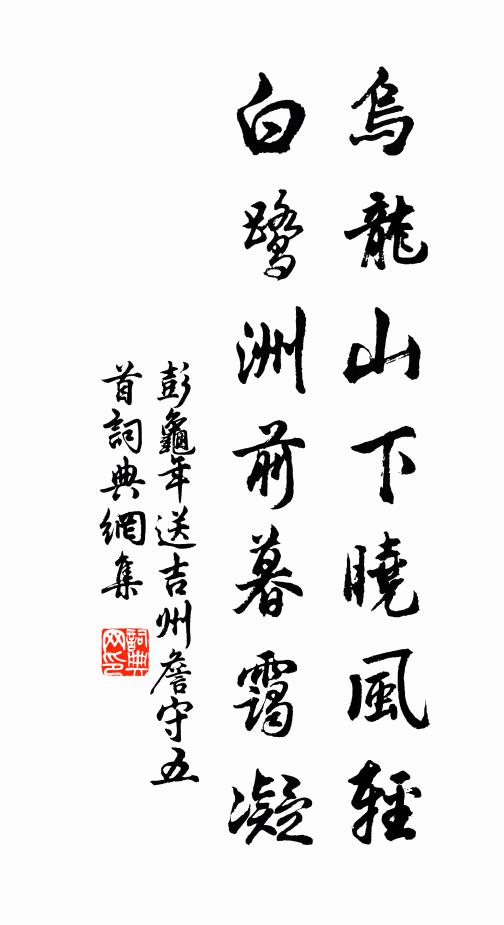 烏龍山下曉風輕
白鷺洲前暮靄凝
彭龜年送吉州詹守五
首詞典網集
詞典网印